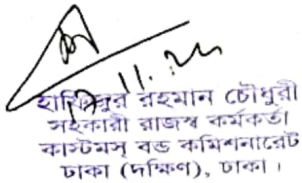 ১৭.১১.২২
হাফিজুর রহমান চৌধুরী
সহকারী রাজস্ব কর্মকর্তা
কাস্টমস্ বন্ড কমিশনারেট
ঢাকা (দক্ষিণ), ঢাকা।